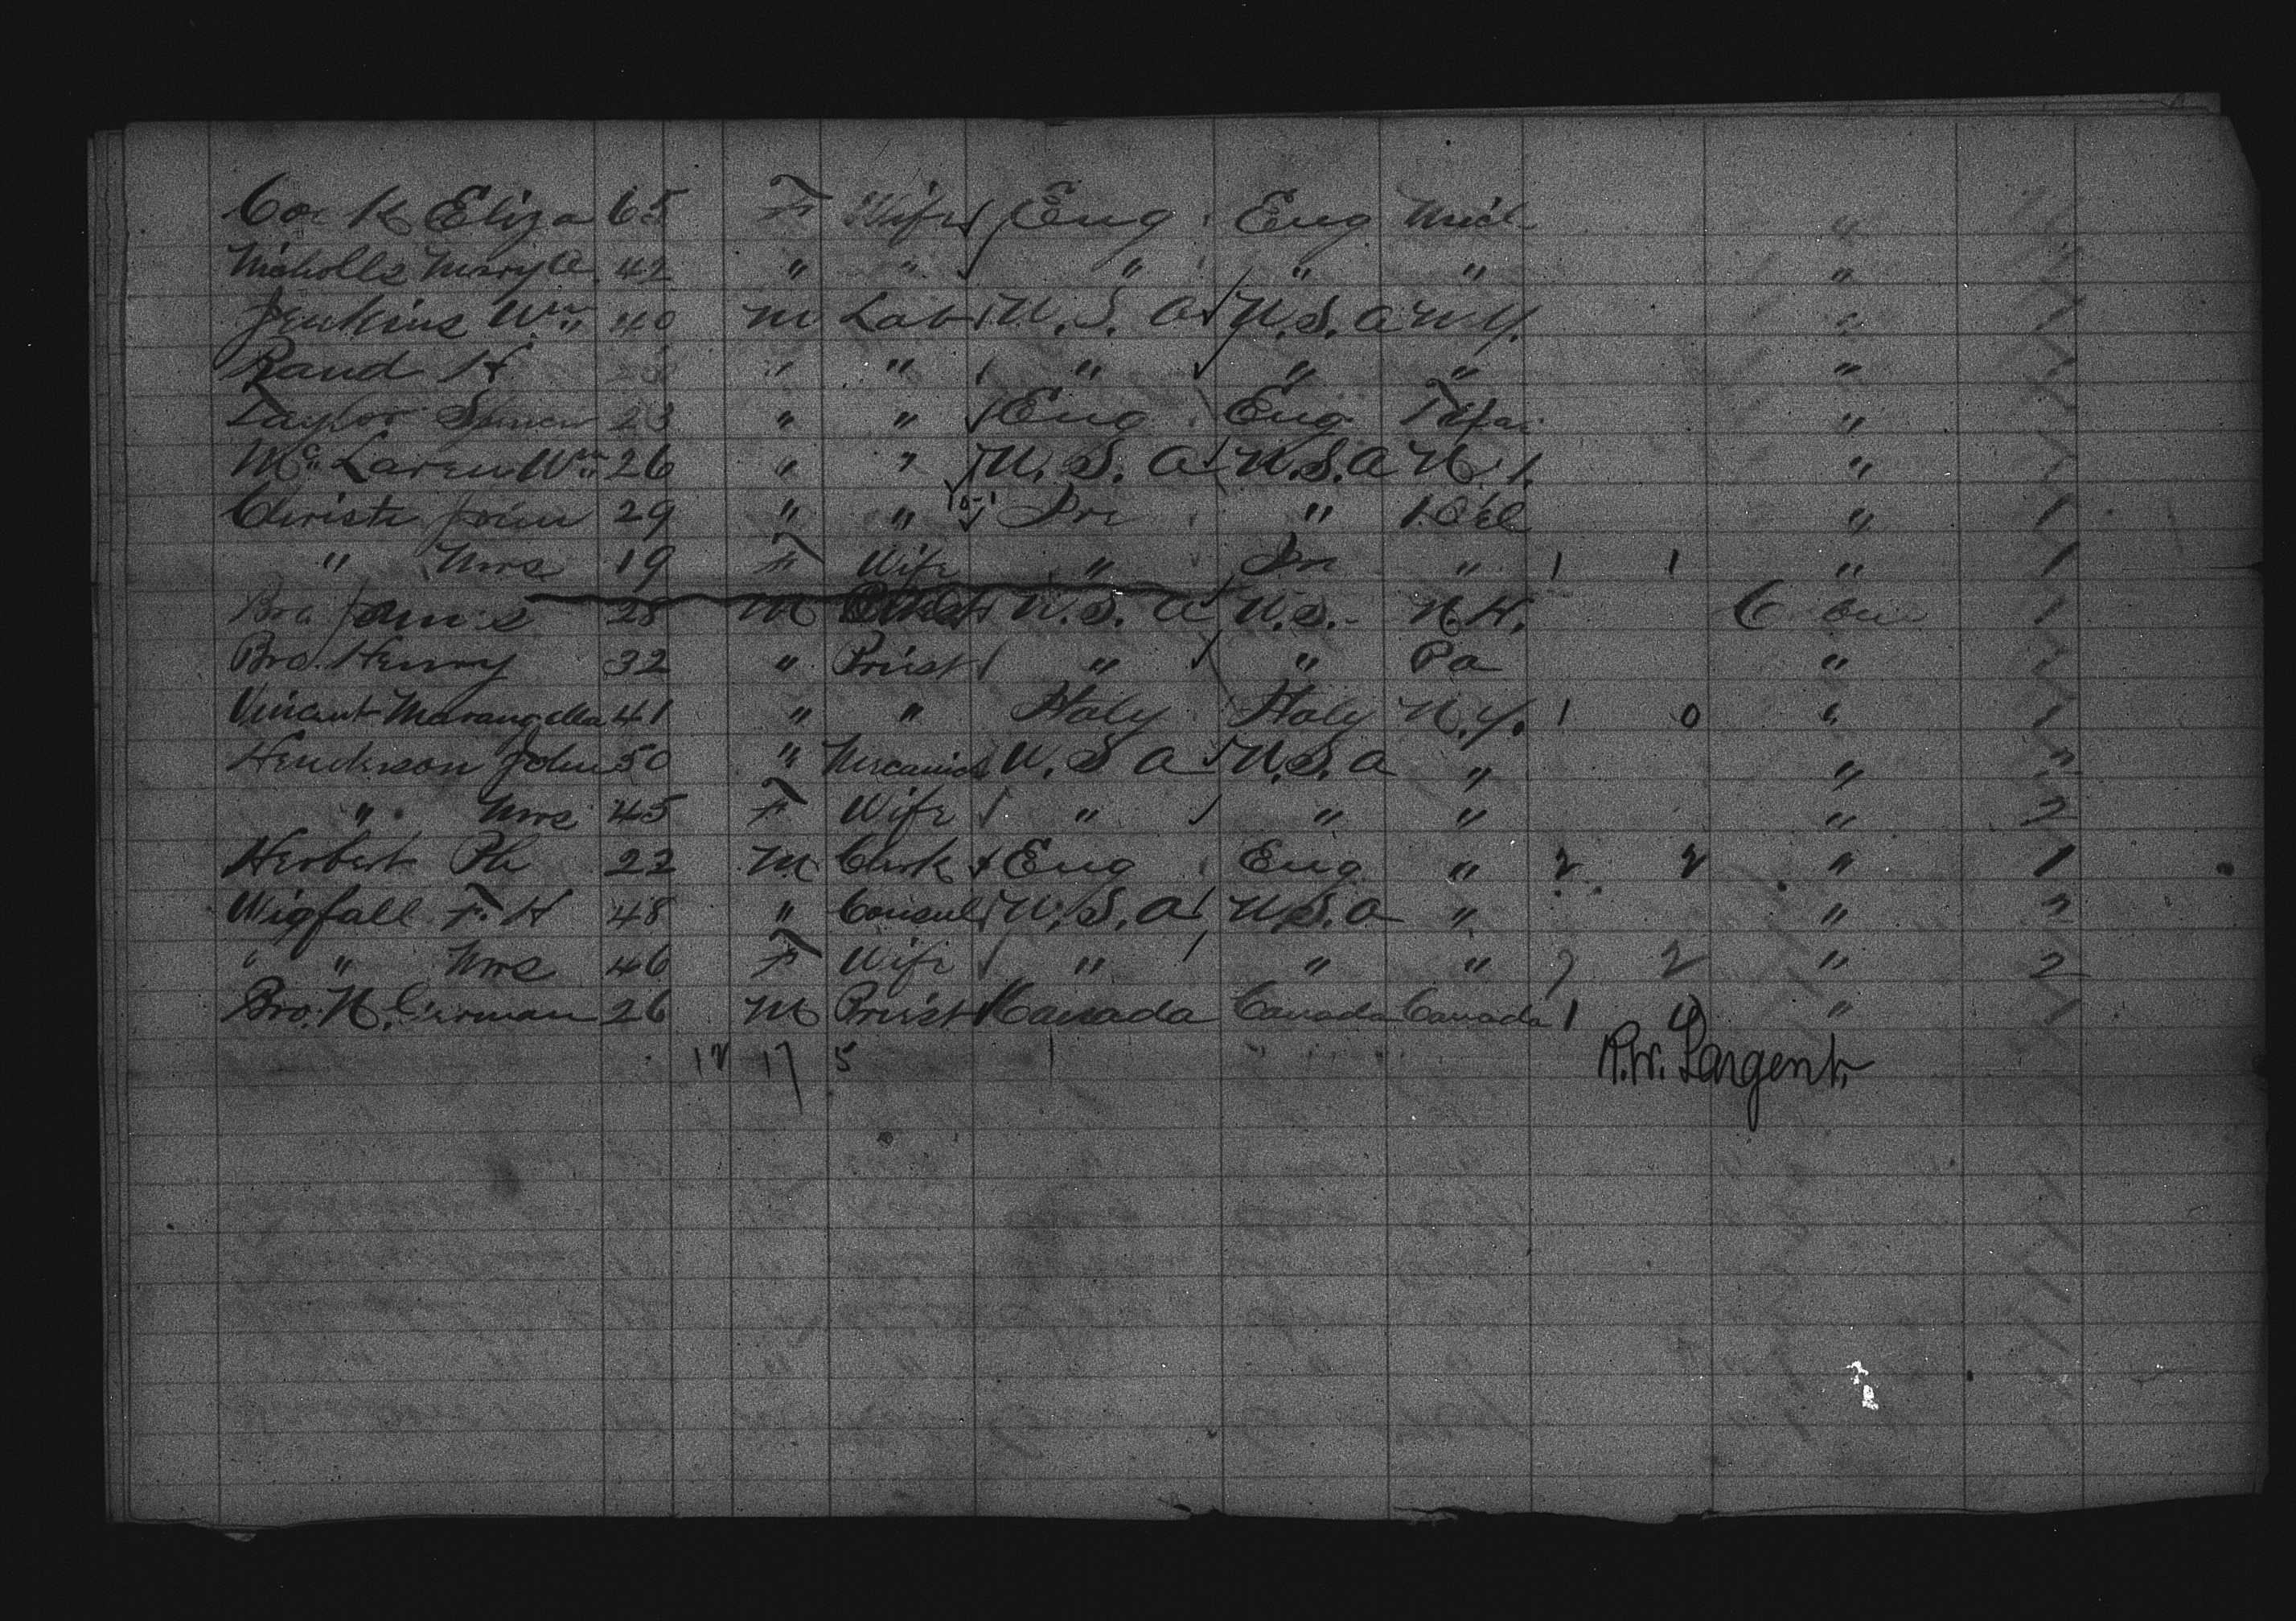 Cock Eliza 65 F Wife Eng Eng Mich "
Nicholls Mary 42 " " " " " "
Jenkins Wm 40 M Lab U.S.A U.S.A N.Y. " 1
Rand H " " " " " "
Taylor 23 " " Eng Eng "
Mc Laren Wm 26 " " U.S.A U.S.A "
Christe John 29 " " Ire " Del " 1
" Mrs 19 F Wife " Ire " 1 1 " 1
Bro James 28 M U.S.A U.S. N.H. 1
Bro. Henry 32 " Priest " " Pa "
Vincent Marangella 41 " " Italy Italy N.Y. 1 0 " 1
Henderson John 50 " Mecanic U.S A U.S.A " " 2
" Mrs 45 F Wife " " " " 2
Herbert Ph 22 M Clerk Eng Eng " 2 2 " 1
Wigfall F. H 48 " Consul U.S.A U.S.A " " 2
" " Mrs 46 F Wife " " " 2 2 " 2
Bro. N. German 26 M Priest Canada Canada Canada 1 " 1
12 17 5 1 R.W. Sargent